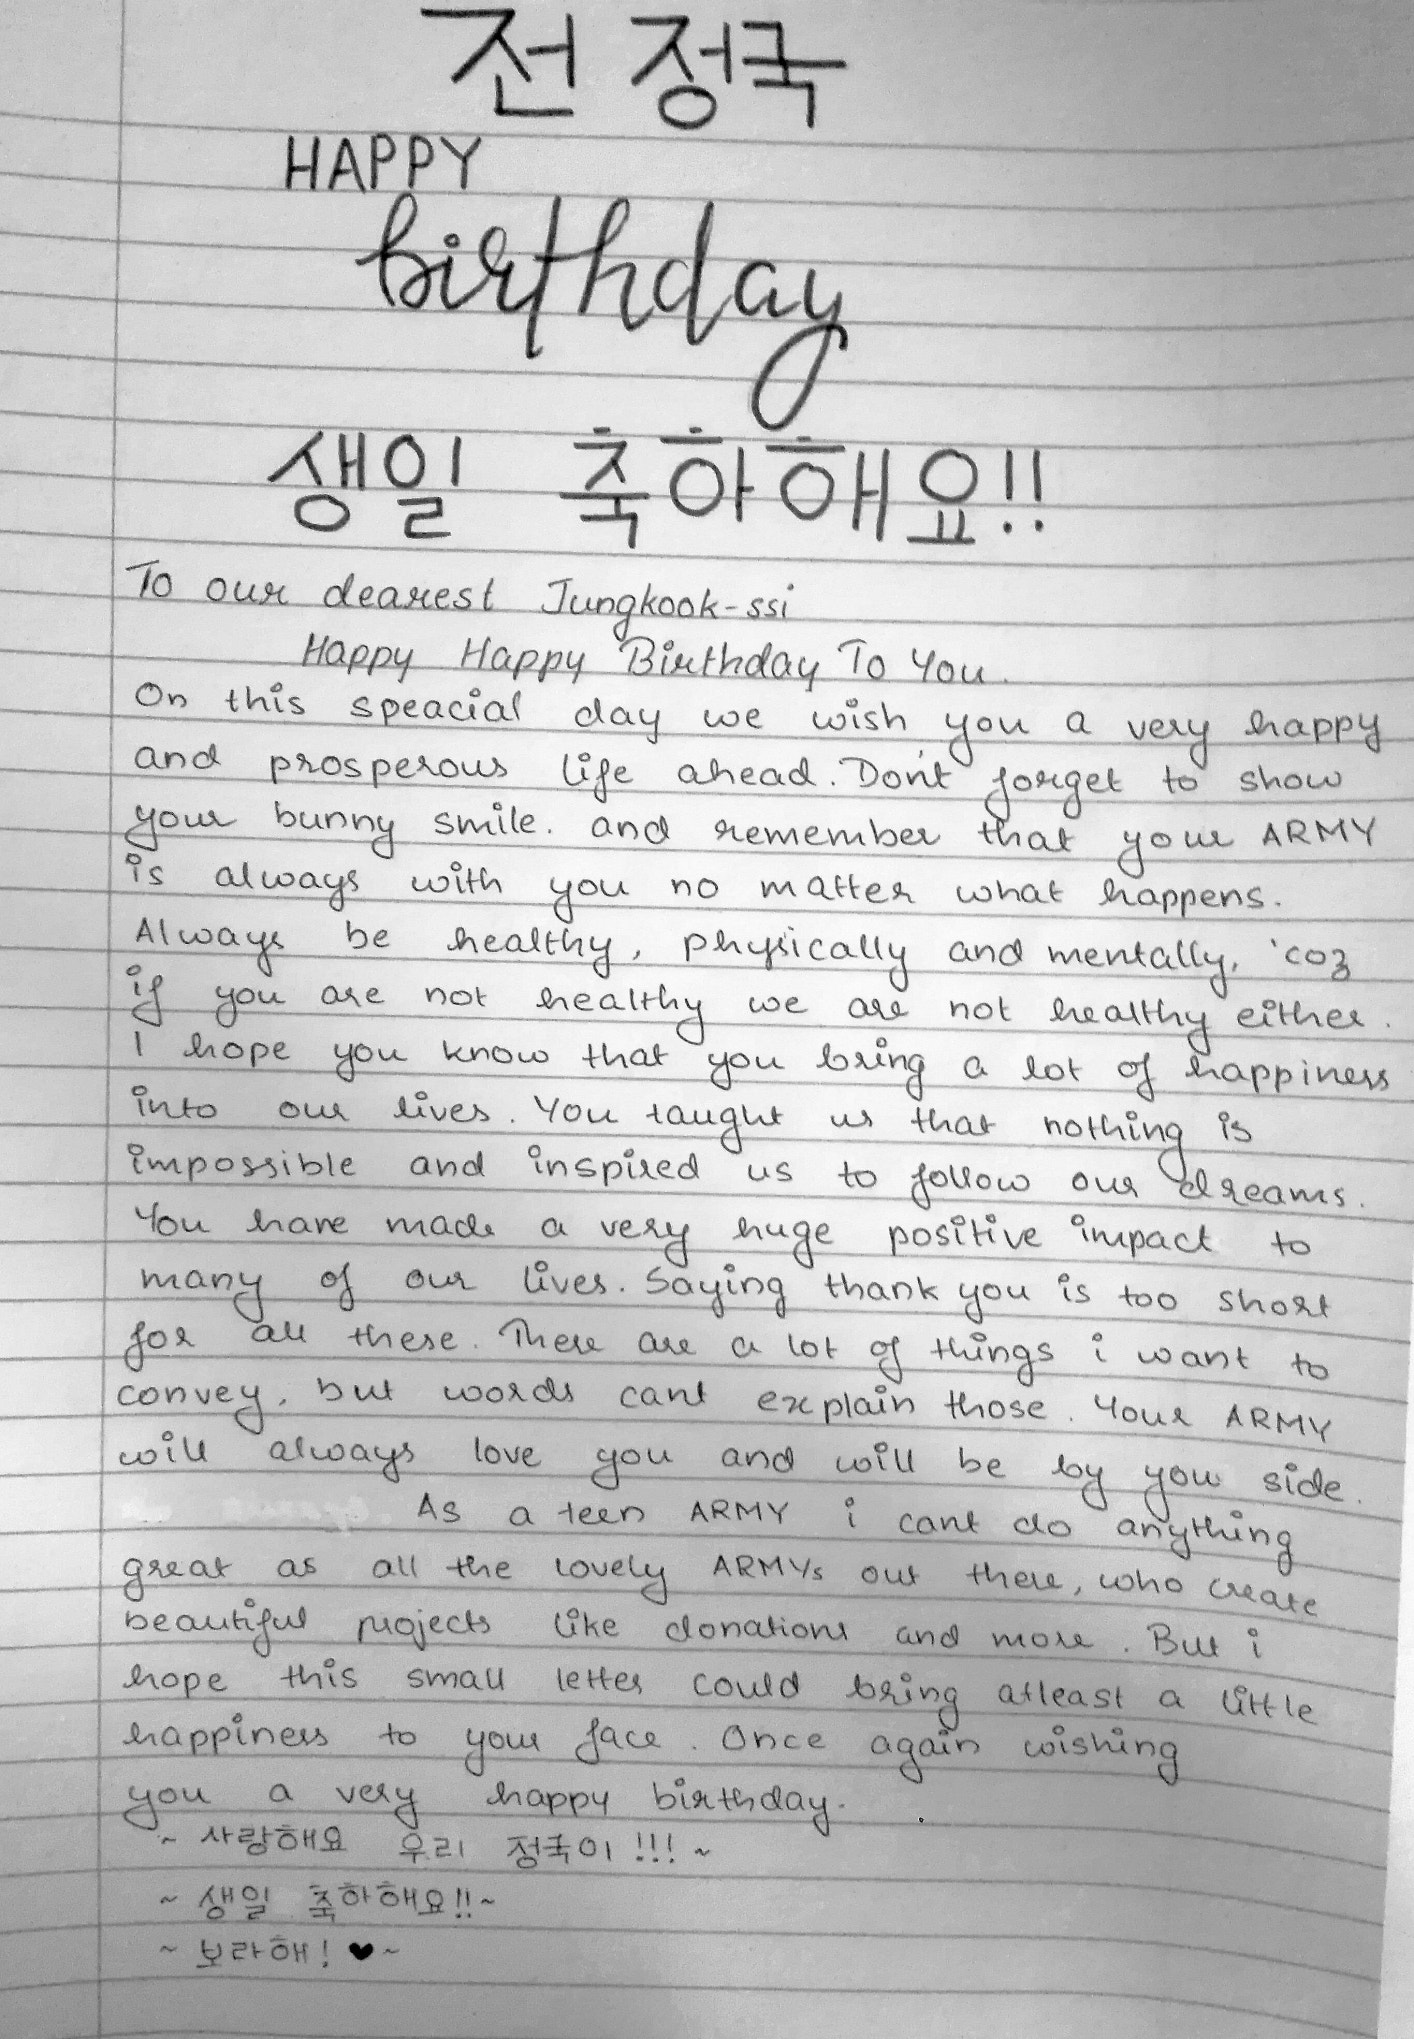 전 정국
HAPPY
birthday
생일 축하해요!!
To our dearest Jungkook-ssi
Happy Happy Birthday To You.
On this speacial day we wish you a very happy
and prosperous life ahead. Don't forget to show
your bunny smile. and remember that your ARMY
is always with you no matter what happens.
Always be healthy, physically and mentally, 'coz
if you are not healthy we are not healthy either.
I hope you know that you bring a lot of happiness
into our lives. You taught us that nothing is
impossible and inspired us to follow our dreams.
You have made a very huge positive impact to
many of our lives. Saying thank you is too short
for all these. There are a lot of things i want to
convey, but words cant explain those. Your ARMY
will always love you and will be by your side.
As a teen ARMY i cant do anything
great as all the lovely ARMYs out there, who create
beautiful projects like donations and more. But i
hope this small letter could bring atleast a little
happiness to your face. Once again wishing
you a very happy birthday.
~ 사랑해요 우리 정국이!!! ~
~ 생일 축하해요!! ~
~ 보라해! ♥ ~